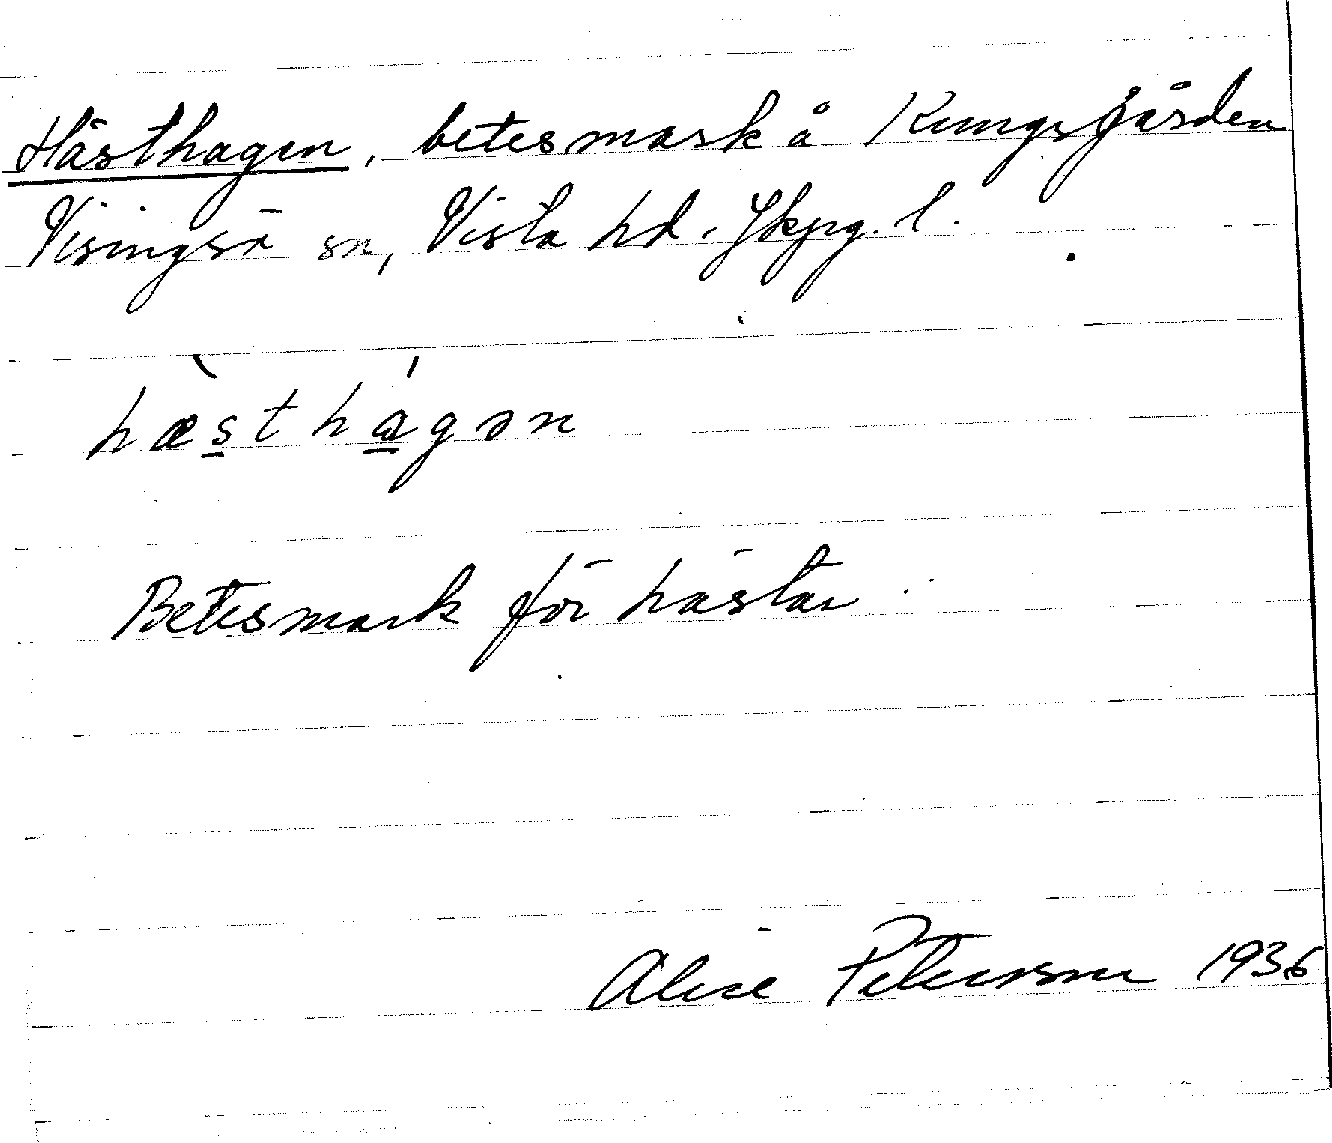 Hästhagen, betesmark å Kungsgården
Visingsö sn, Vista hd. Jkpg. l.
hæ̀sthágən
Betesmark för hästar
Alice Petersson 1936